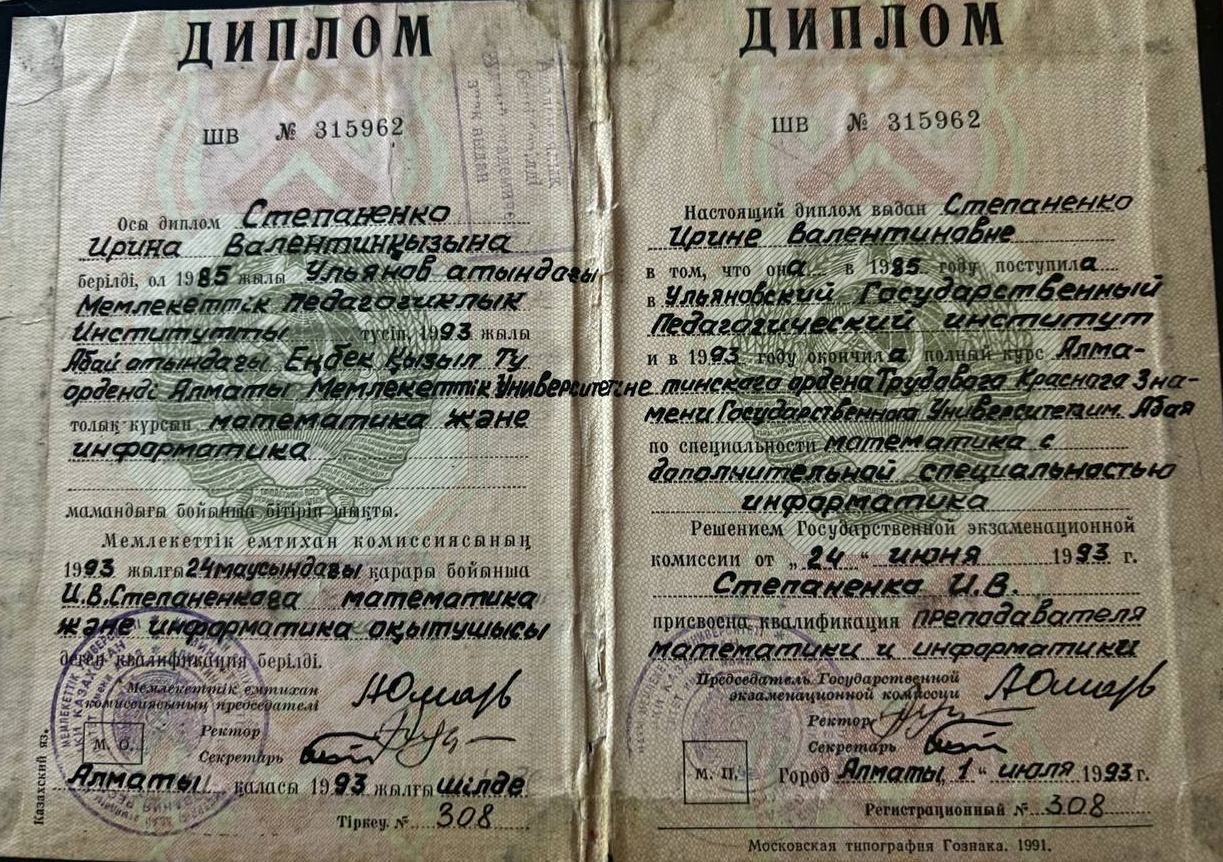 ДИПЛОМ
ШВ № 315962
Осы диплом Степаненко
Ирина Валентинқызына
берілді, ол 1985 жылы Ульянов атындағы
Мемлекеттік педагогиклык
Институтты түсіп, 1993 жылы
Абай атындағы Еңбек Қызыл Ту
орденді Алматы Мемлекеттік Университетіне
толық курсын математика және
информатика
мамандығы бойынша бітіріп шықты.
Мемлекеттік емтихан комиссиясының
1993 жылғы 24 маусындағы қарары бойынша
И.В.Степаненкоға математика
және информатика оқытушысы
деген квалификация берілді.
Мемлекеттік емтихан
комиссиясының председателі
Ректор
М. О.
Секретарь
Алматы қаласы 1993 жылғы шілде
Тіркеу. № 308
Казахский яз.
ДИПЛОМ
ШВ № 315962
Настоящий диплом выдан Степаненко
Ирине Валентиновне
в том, что она в 1985 году поступила
в Ульяновский Государственный
Педагогический институт
и в 1993 году окончила полный курс Алма-
тинского ордена Трудового Красного Зна-
мени Государственного Университета им. Абая
по специальности математика с
дополнительной специальностью
информатика
Решением Государственной экзаменационной
комиссии от „24“ июня 1993 г.
Степаненко И.В.
присвоена квалификация преподавателя
математики и информатики
Председатель Государственной
экзаменационной комиссии
Ректор
Секретарь
М. П.
Город Алматы, 1 “ июля 1993 г.
Регистрационный № 308
Московская типография Гознака. 1991.